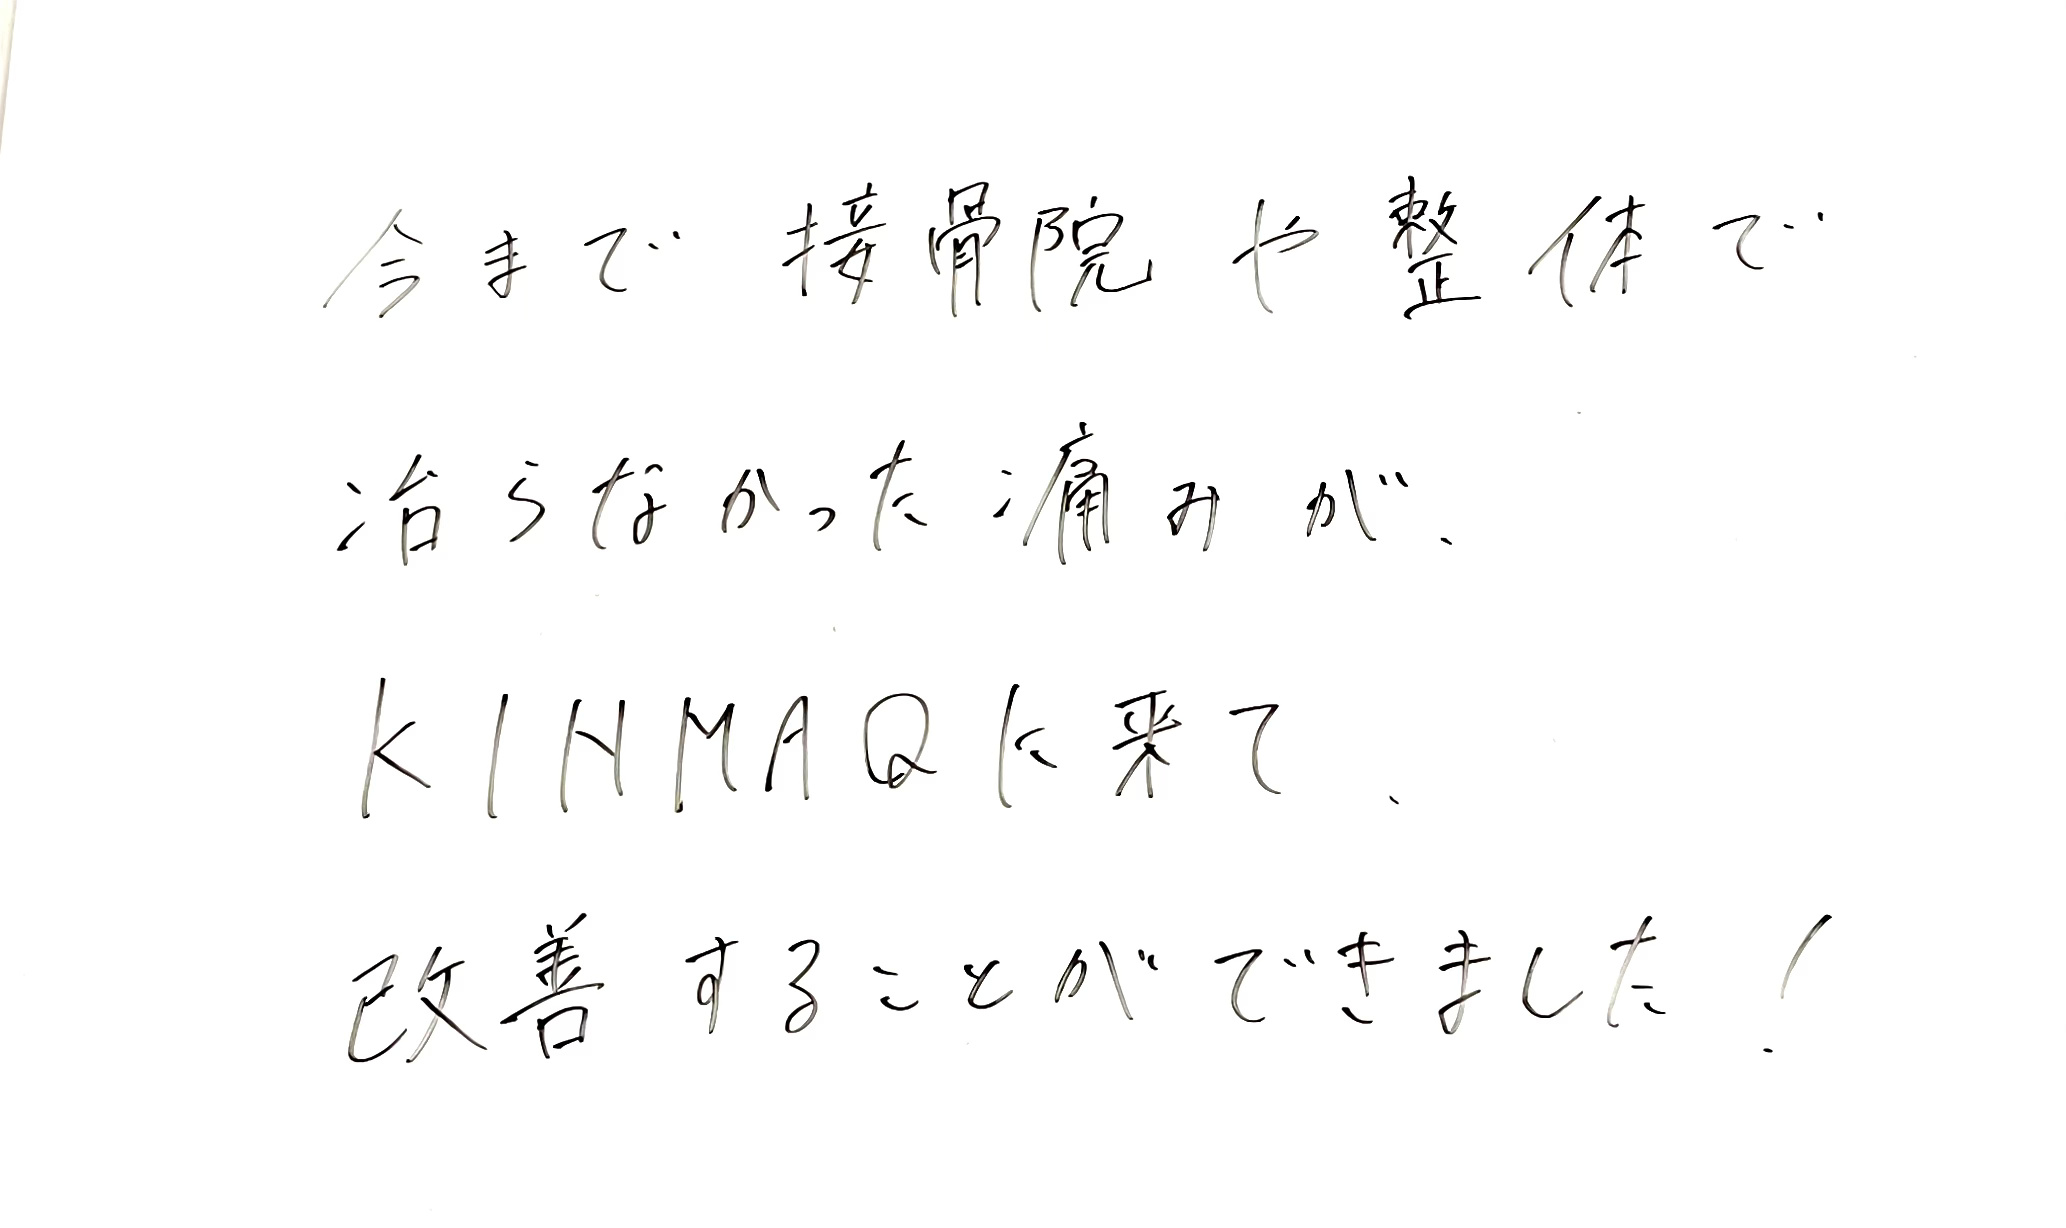 今まで接骨院や整体で
治らなかった痛みが、
KINMAQに来て、
改善することができました！